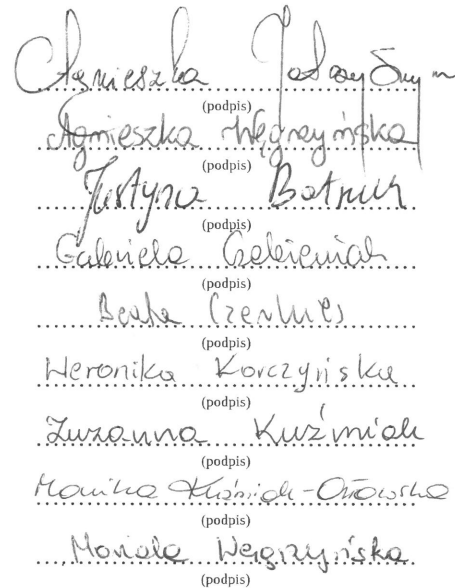 Agnieszka
(podpis)
Agnieszka Węgrzyńska
(podpis)
Justyna
(podpis)
Gabriela
(podpis)
Beata
(podpis)
Weronika Korczyńska
(podpis)
Zuzanna Kuźmiak
(podpis)
Monika Kuźmiak-Orłowska
(podpis)
Mariola Węgrzyńska
(podpis)